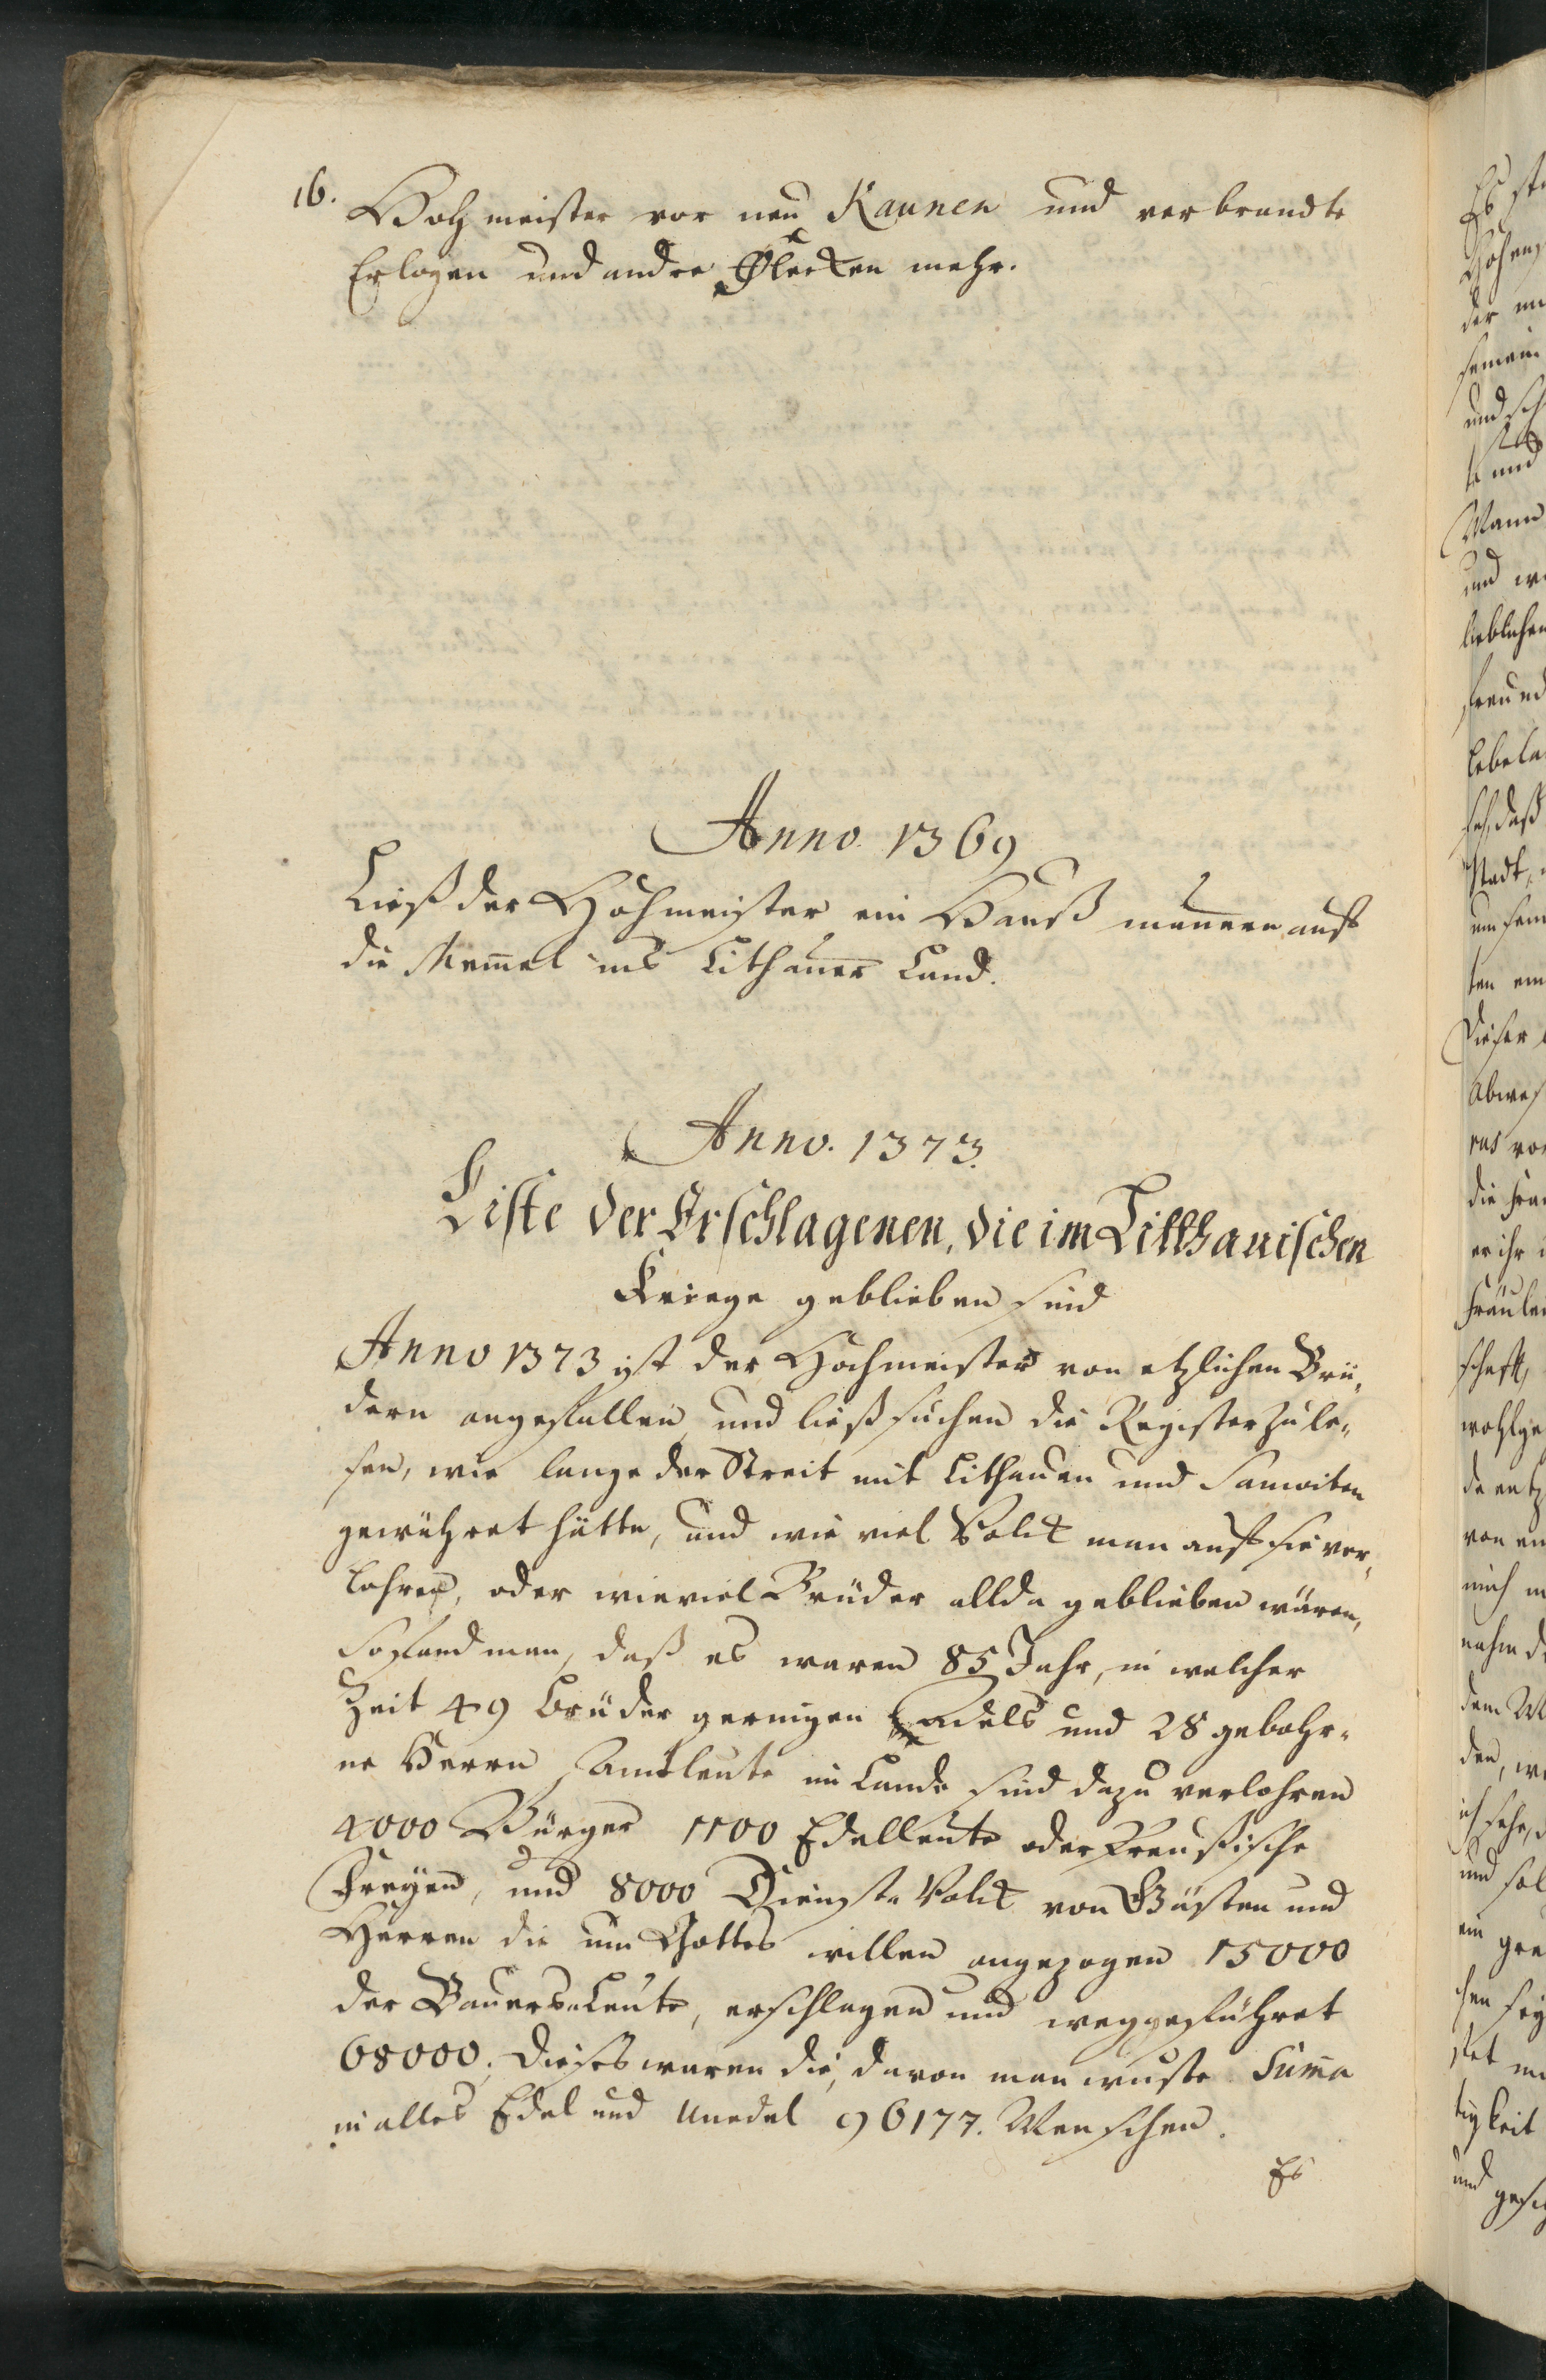 16.
Hohmeister vor neu Kaunen und verbrandte
Erlogen und andre Flecken mehr.
Anno 1369
Ließ der Hohmeister ein Hauß mauren auf
die Memel ins Lithauer Land.
Anno. 1373.
Liste der Erschlagenen, die im Litthauischen
Kriege geblieben sind
Anno 1373 ist der Hochmeister von etzlichen Brü-
dern angefallen und ließ suchen die Register zu le-
sen, wie lange der Streit mit Lithauen und Samoiten
gewähret hätte, und wie viel Volck man auf sie ver-
lohren, oder wieviel Brüder allda geblieben wären,
So fand man, daß es waren 85 Jahr, in welcher
Zeit 49 Brüder geringen Adels und 28 gebohr-
ne Herrn Amtleute im Lande sind dazu verlohren
4000 Bürger 1100 Edelleute oder Preußische
Freyen, und 8000 Dienste Volck von Gästen und
Herren die um Gottes willen angezogen 15000
der Bauers-Leute, erschlagen und weggeführet
68000. Dieses waren die, davon man wuste. Suma
in alles Edel und Unedel 96177. Menschen.
Es